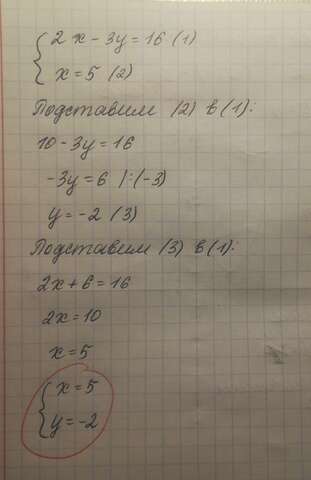 { 2x - 3y = 16 (1)
x = 5 (2)
Подставим (2) в (1):
10 - 3y = 16
-3y = 6 |:(-3)
y = -2 (3)
Подставим (3) в (1):
2x + 6 = 16
2x = 10
x = 5
{ x = 5
y = -2